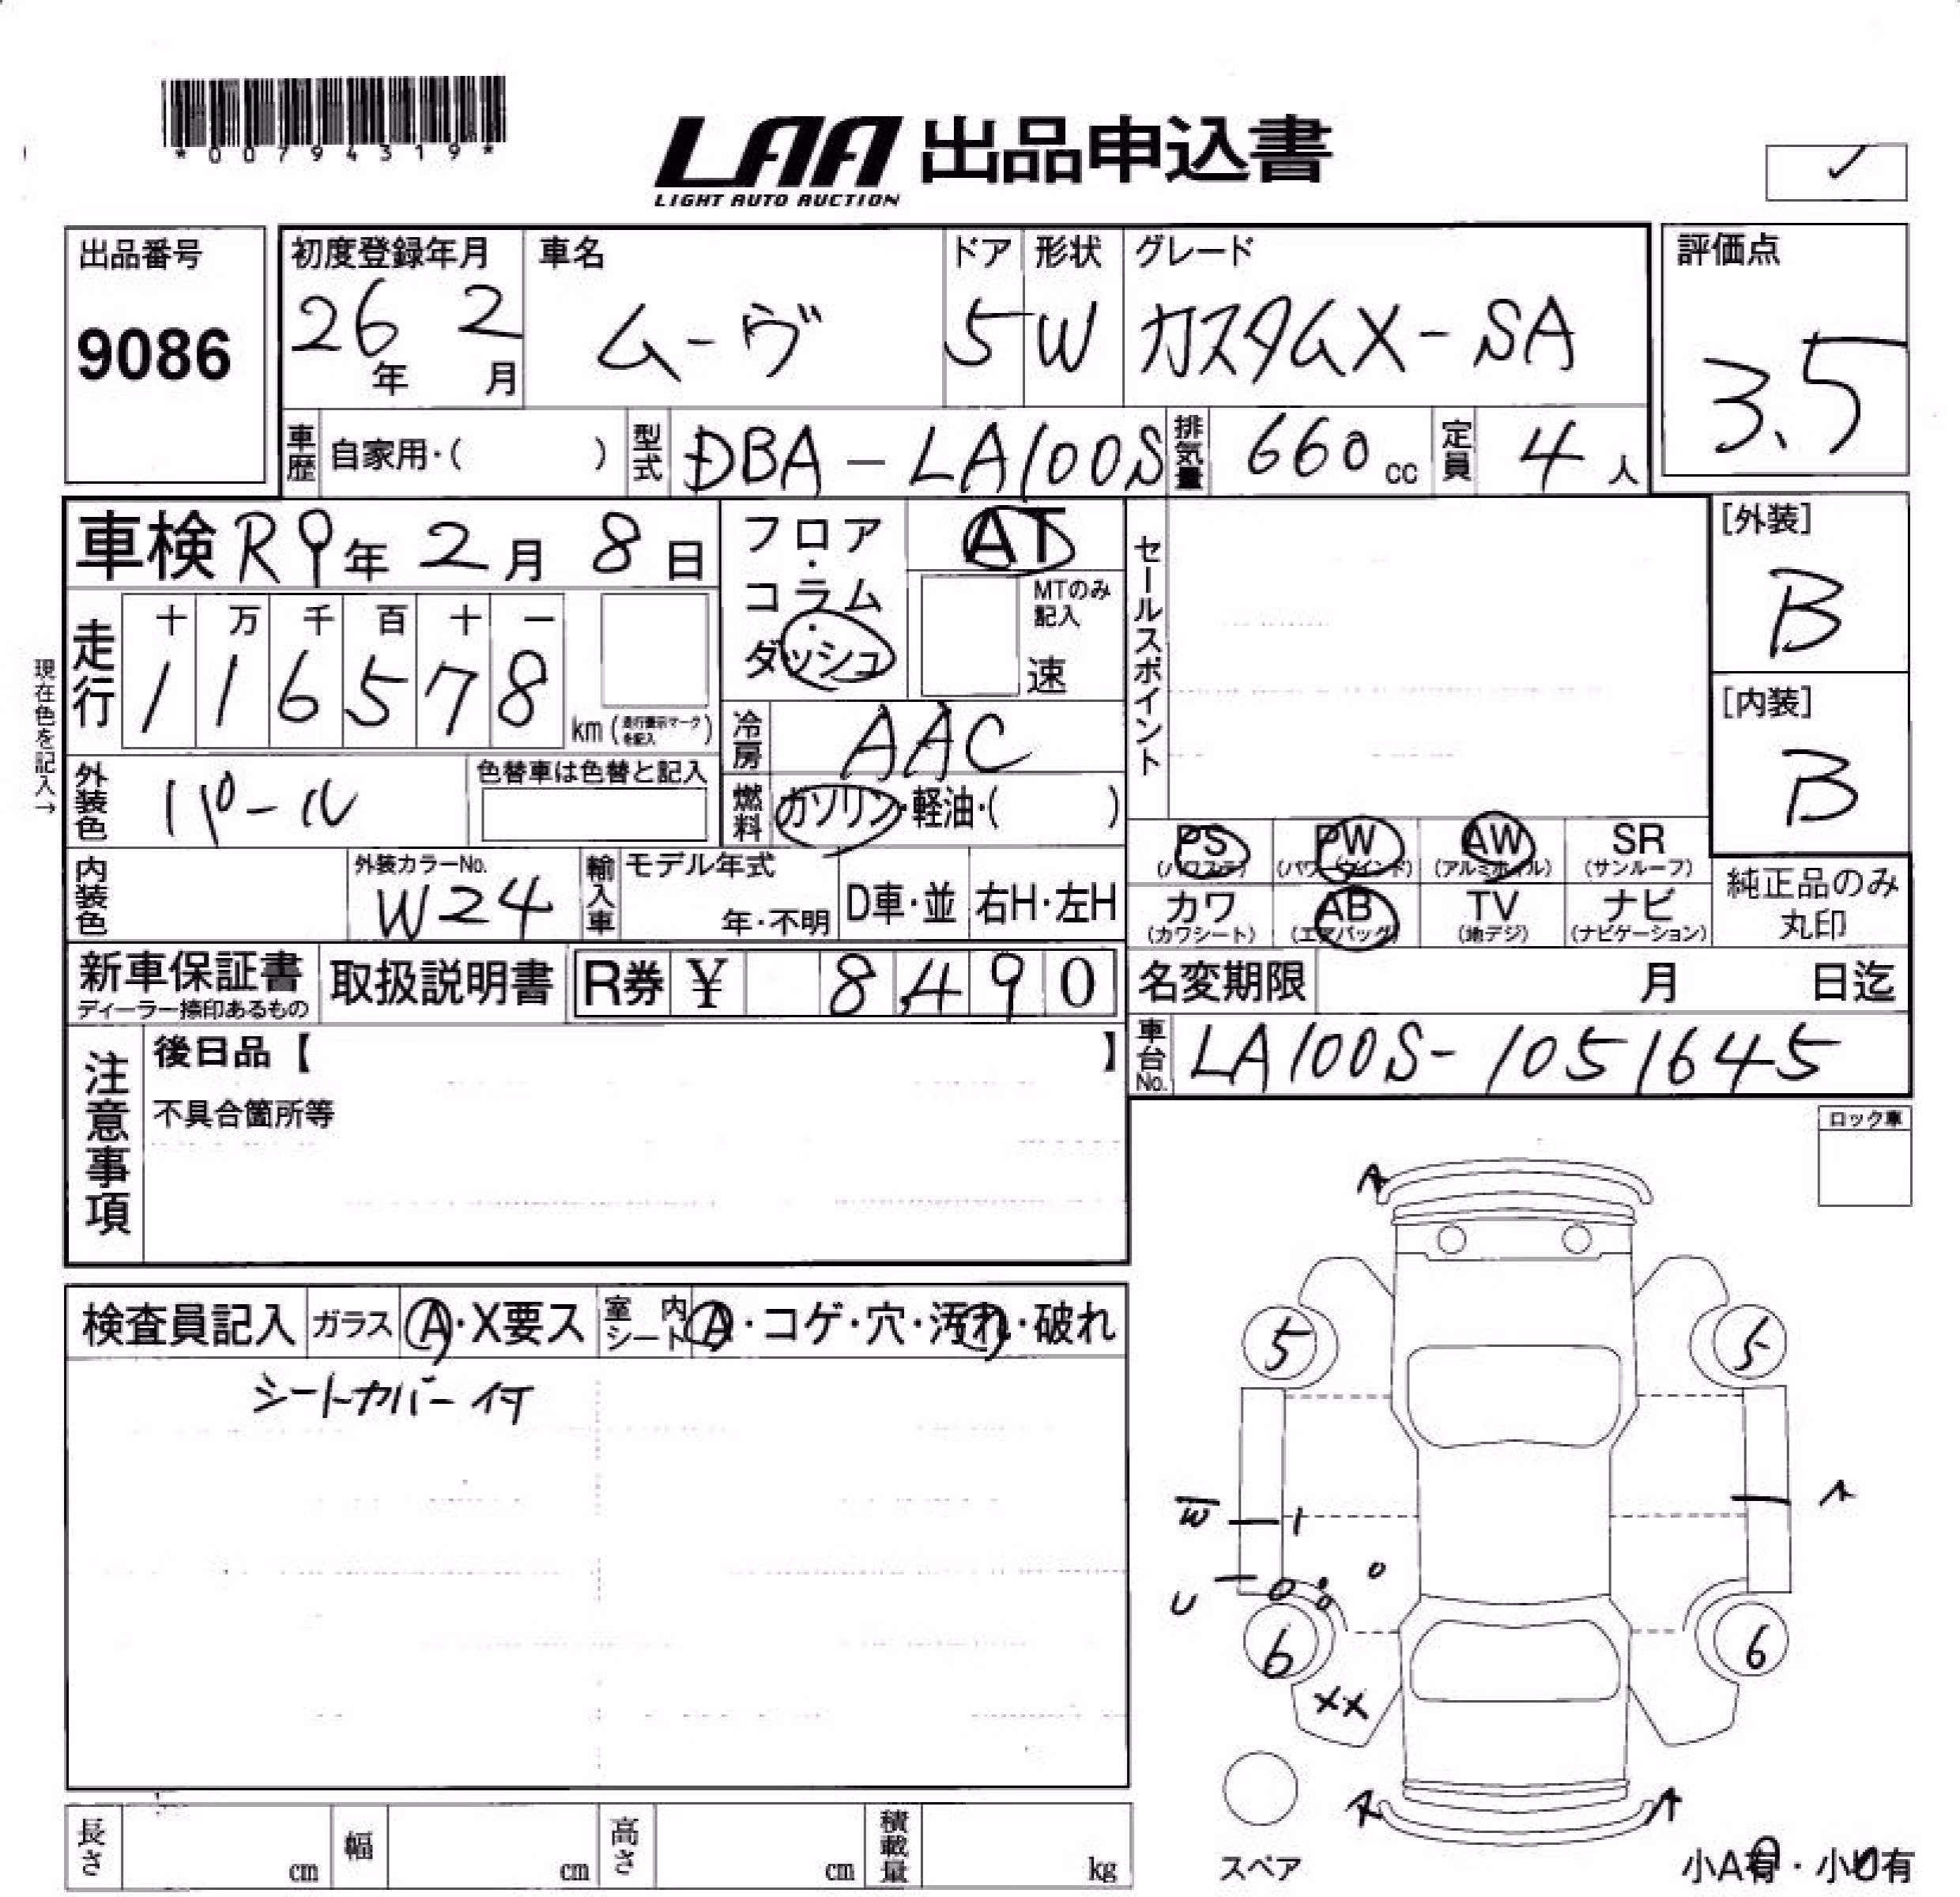 *00794319*
LAA 出品申込書
LIGHT AUTO AUCTION
出品番号
9086
初度登録年月
26年 2月
車名
ムーヴ
ドア
5
形状
W
グレード
カスタムX-SA
評価点
3.5
車歴 自家用・( )
型式 DBA-LA100S
排気量 660cc
定員 4人
車検 R9年 2月 8日
フロア・コラム・ダッシュ
AT
MTのみ記入
速
セールスポイント
[外装]
B
現在色を記入→
走行
十 万 千 百 十 一
1 1 6 5 7 8
km(走行表示マークを記入)
冷房 AAC
[内装]
B
外装色 パール
色替車は色替と記入
燃料 ガソリン・軽油・( )
PS (パワステ)
PW (パワーウインド)
AW (アルミホイル)
SR (サンルーフ)
純正品のみ丸印
内装色
外装カラーNo.
W24
輸入車
モデル年式
年・不明
D車・並
右H・左H
カワ (カワシート)
AB (エアバッグ)
TV (地デジ)
ナビ (ナビゲーション)
新車保証書
ディーラー捺印あるもの
取扱説明書
R券 ¥ 8,490
名変期限 月 日迄
車台No. LA100S-1051645
注意事項
後日品【 】
不具合箇所等
ロック車
検査員記入 ガラス A・X要ス 室内シート A・コゲ・穴・汚れ・破れ
シートカバー付
A
5 5
W
U
6 6
XX
スペア
小A有・小U有
長さ cm 幅 cm 高さ cm 積載量 kg